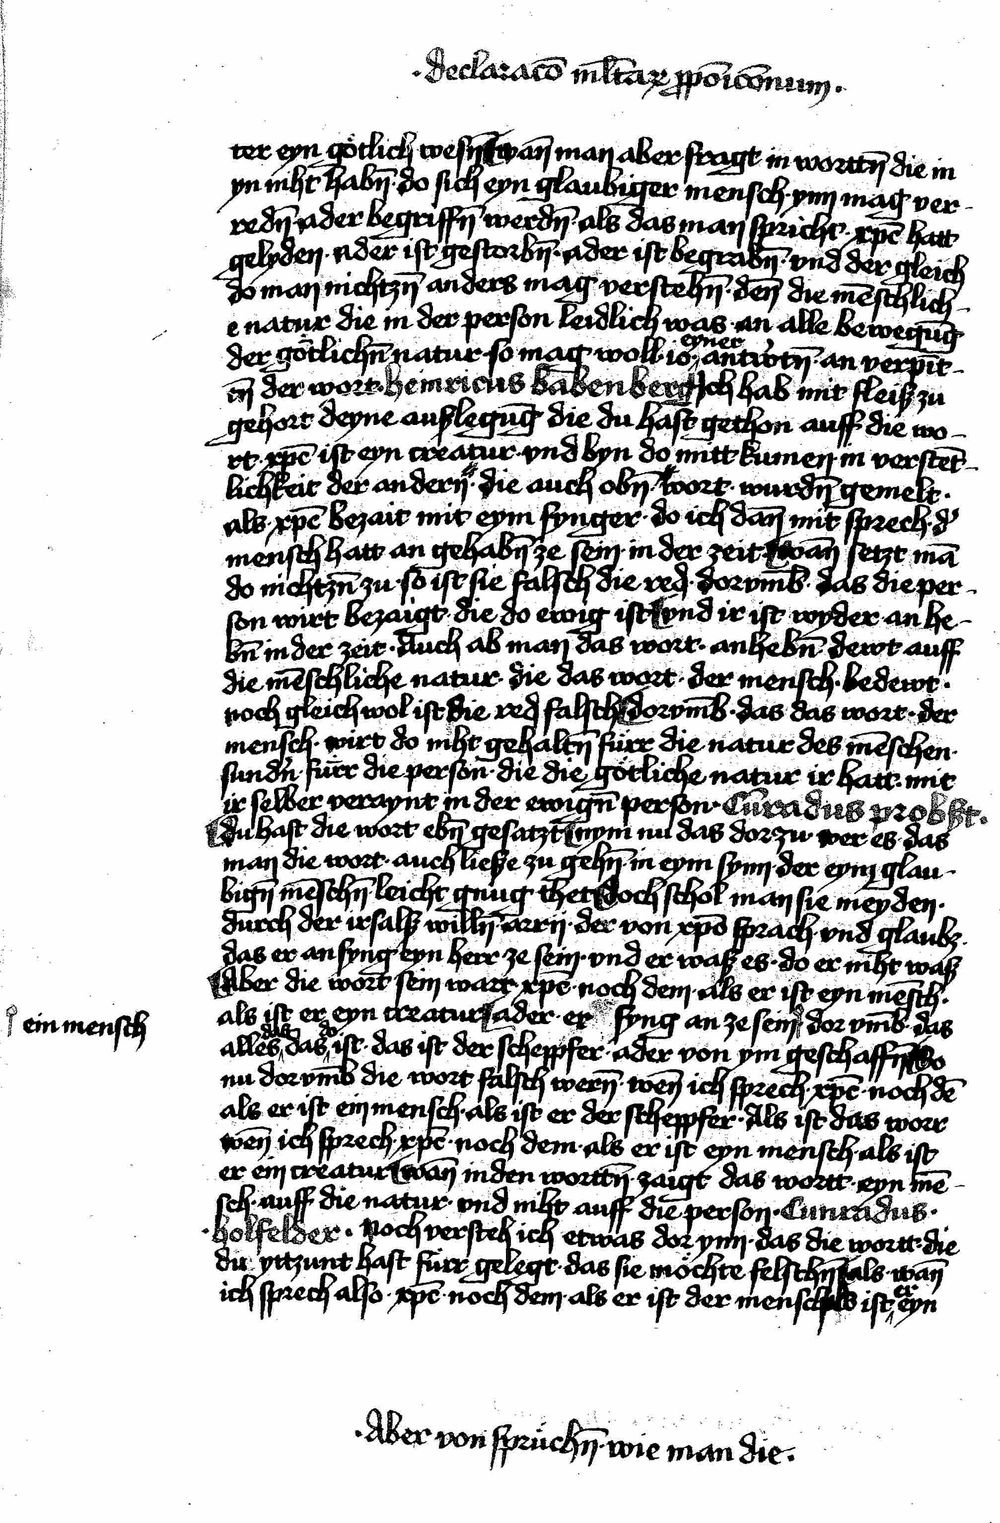 ·declaracō ml̄tar᷑ ꝓpōicōnum·
ter eyn götlich wesn̄ wan̄ man aber fragt in wortn̄ die in
yn niht habn̄· do sich eyn glaubiger mensch· ynn mag ver-
redn̄· ader begriffn̄ werdn̄· als das man spricht· xp̄c hatt
gelyden· ader ist gestorbn̄· ader ist begrabn̄· vnd der gleich
do man nichtzn̄ anders mag verstehn̄· den̄ die mēschlich-
e natur die in der person leidlich was· an alle bewegūg
der götlichn̄ natur· so mag woll· io· eyner antwortn̄· an verpīt-
tn̄ der wort· heinricus babenberg Ich hab mit fleisz zu
gehort deyne auszlegūg die du hast gethon auff die wo-
rt· xp̄c ist eyn creatur· vnd byn do mitt kumen in verstēt-
lichkeit der andern̄· die auch obn̄· wort· wurdn̄ gemelt·
als xp̄c bezait mit eym fynger· do ich dan̄ mit sprech· d'
mensch hatt an gehabn̄ ze sein in der zeit· wan̄ setzt mā
do nichtzn̄ zu· so ist sie falsch die red· dorvmb̄· das die per-
son wirt bezaigt· die do ewig ist vnd ir ist wyder an he-
bn̄ in der zeit· Auch ab man das wort· anhebn̄ dewt auff
die mēschliche natur· die das wort· der mensch· bedewt·
noch gleich wol ist die red falsch dorvmb̄· das das wort· der
mensch· wirt do niht gehaltn̄ fürr die natur des mēschen·
sundn̄· fürr die person· die die götliche natur ir hatt· mit
ir selber veraynt in der ewign̄ person· Cūradus probszt·
du hast die wort ebn̄ gesatzt nym nu das dorzu· wer es· das
man die wort· auch liesze zu gehn̄· in eym synn· der eym glau-
bign̄ mēschn̄ leicht gnug thet doch schol man sie meyden·
durch der irsalsz willn̄· arrij· der von xp̄o sprach· vnd glaubz
das er anfyng eyn herr ze sein· vnd er wasz es· do er niht wasz
Aber die wort sein wart xp̄c· noch dem· als er ist eyn mēsch·
als ist er eyn creatur ader· er fyng an ze sein dor vmb̄· das
ein mensch
alles das das do ist· das ist der scheppfer· ader von ym geschaffn̄ So
nu dorvmb̄ die wort falsch wern̄· wen̄ ich sprech· xp̄c· noch dē
als er ist ein mensch· als ist er der scheppfer· Als ist das worr
wen̄ ich sprech· xp̄c· noch dem· als er ist eyn mensch· als ist
er ein creatur wan̄ in den wortn̄ zaigt das wortt· eyn mē-
sch· auff die natur· vnd niht auff die person· Cunradus·
·holfelder· Noch versteh ich etwas dorynn· das die wortt· die
du yttzunt hast fürr gelegt· das sie möchte felschn̄ als wan̄
ich sprech also· xp̄c· noch dem· als er ist der mensch als ist er eyn
·Aber von sprüchn̄· wie man die·